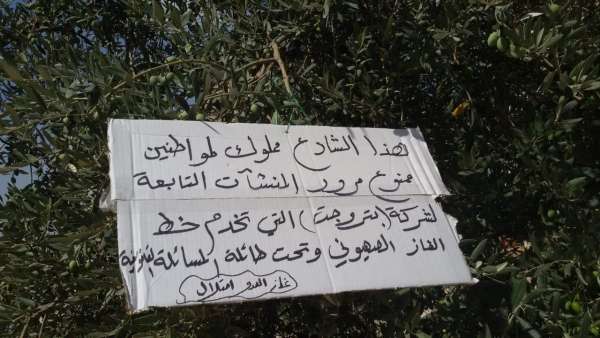 هذا الشارع مملوك لمواطنين
ممنوع مرور المنشآت التابعة
لشركة (بتروجت) التي تخدم خط
الغاز الصهيوني وتحت طائلة المسائلة القانونية
غاز العدو احتلال